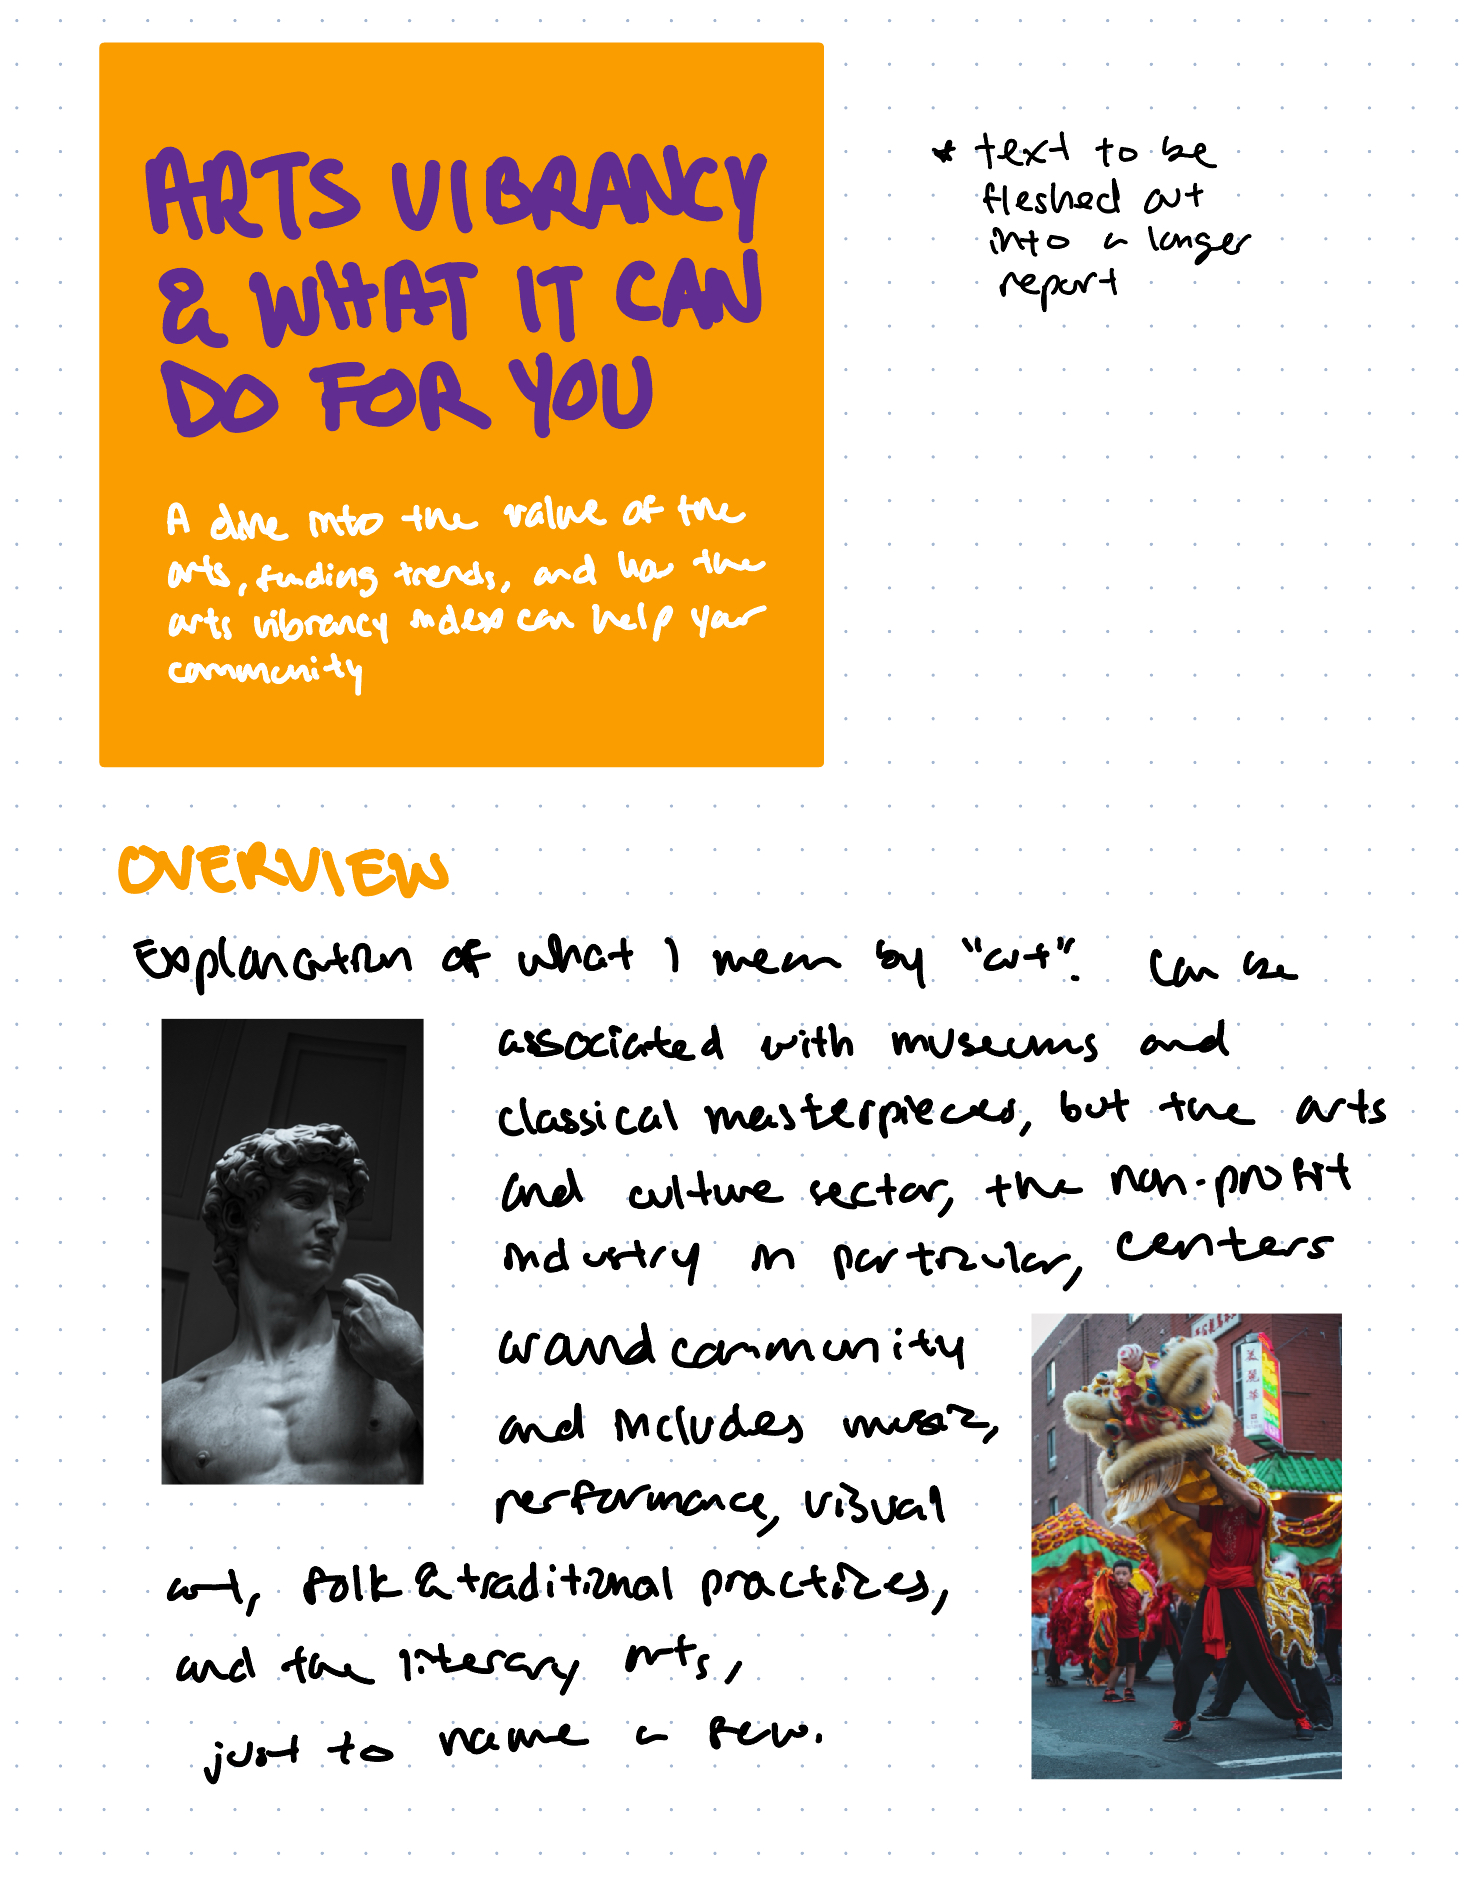 ARTS VIBRANCY
& WHAT IT CAN
DO FOR YOU
A dive into the value of the
arts, funding trends, and how the
arts vibrancy index can help your
community
* text to be
fleshed out
into a longer
report
OVERVIEW
Explanation of what I mean by "art". Can be
associated with museums and
classical masterpieces, but the arts
and culture sector, the non-profit
industry in particular, centers
around community
and includes music,
performance, visual
art, folk & traditional practices,
and the literary arts,
just to name a few.